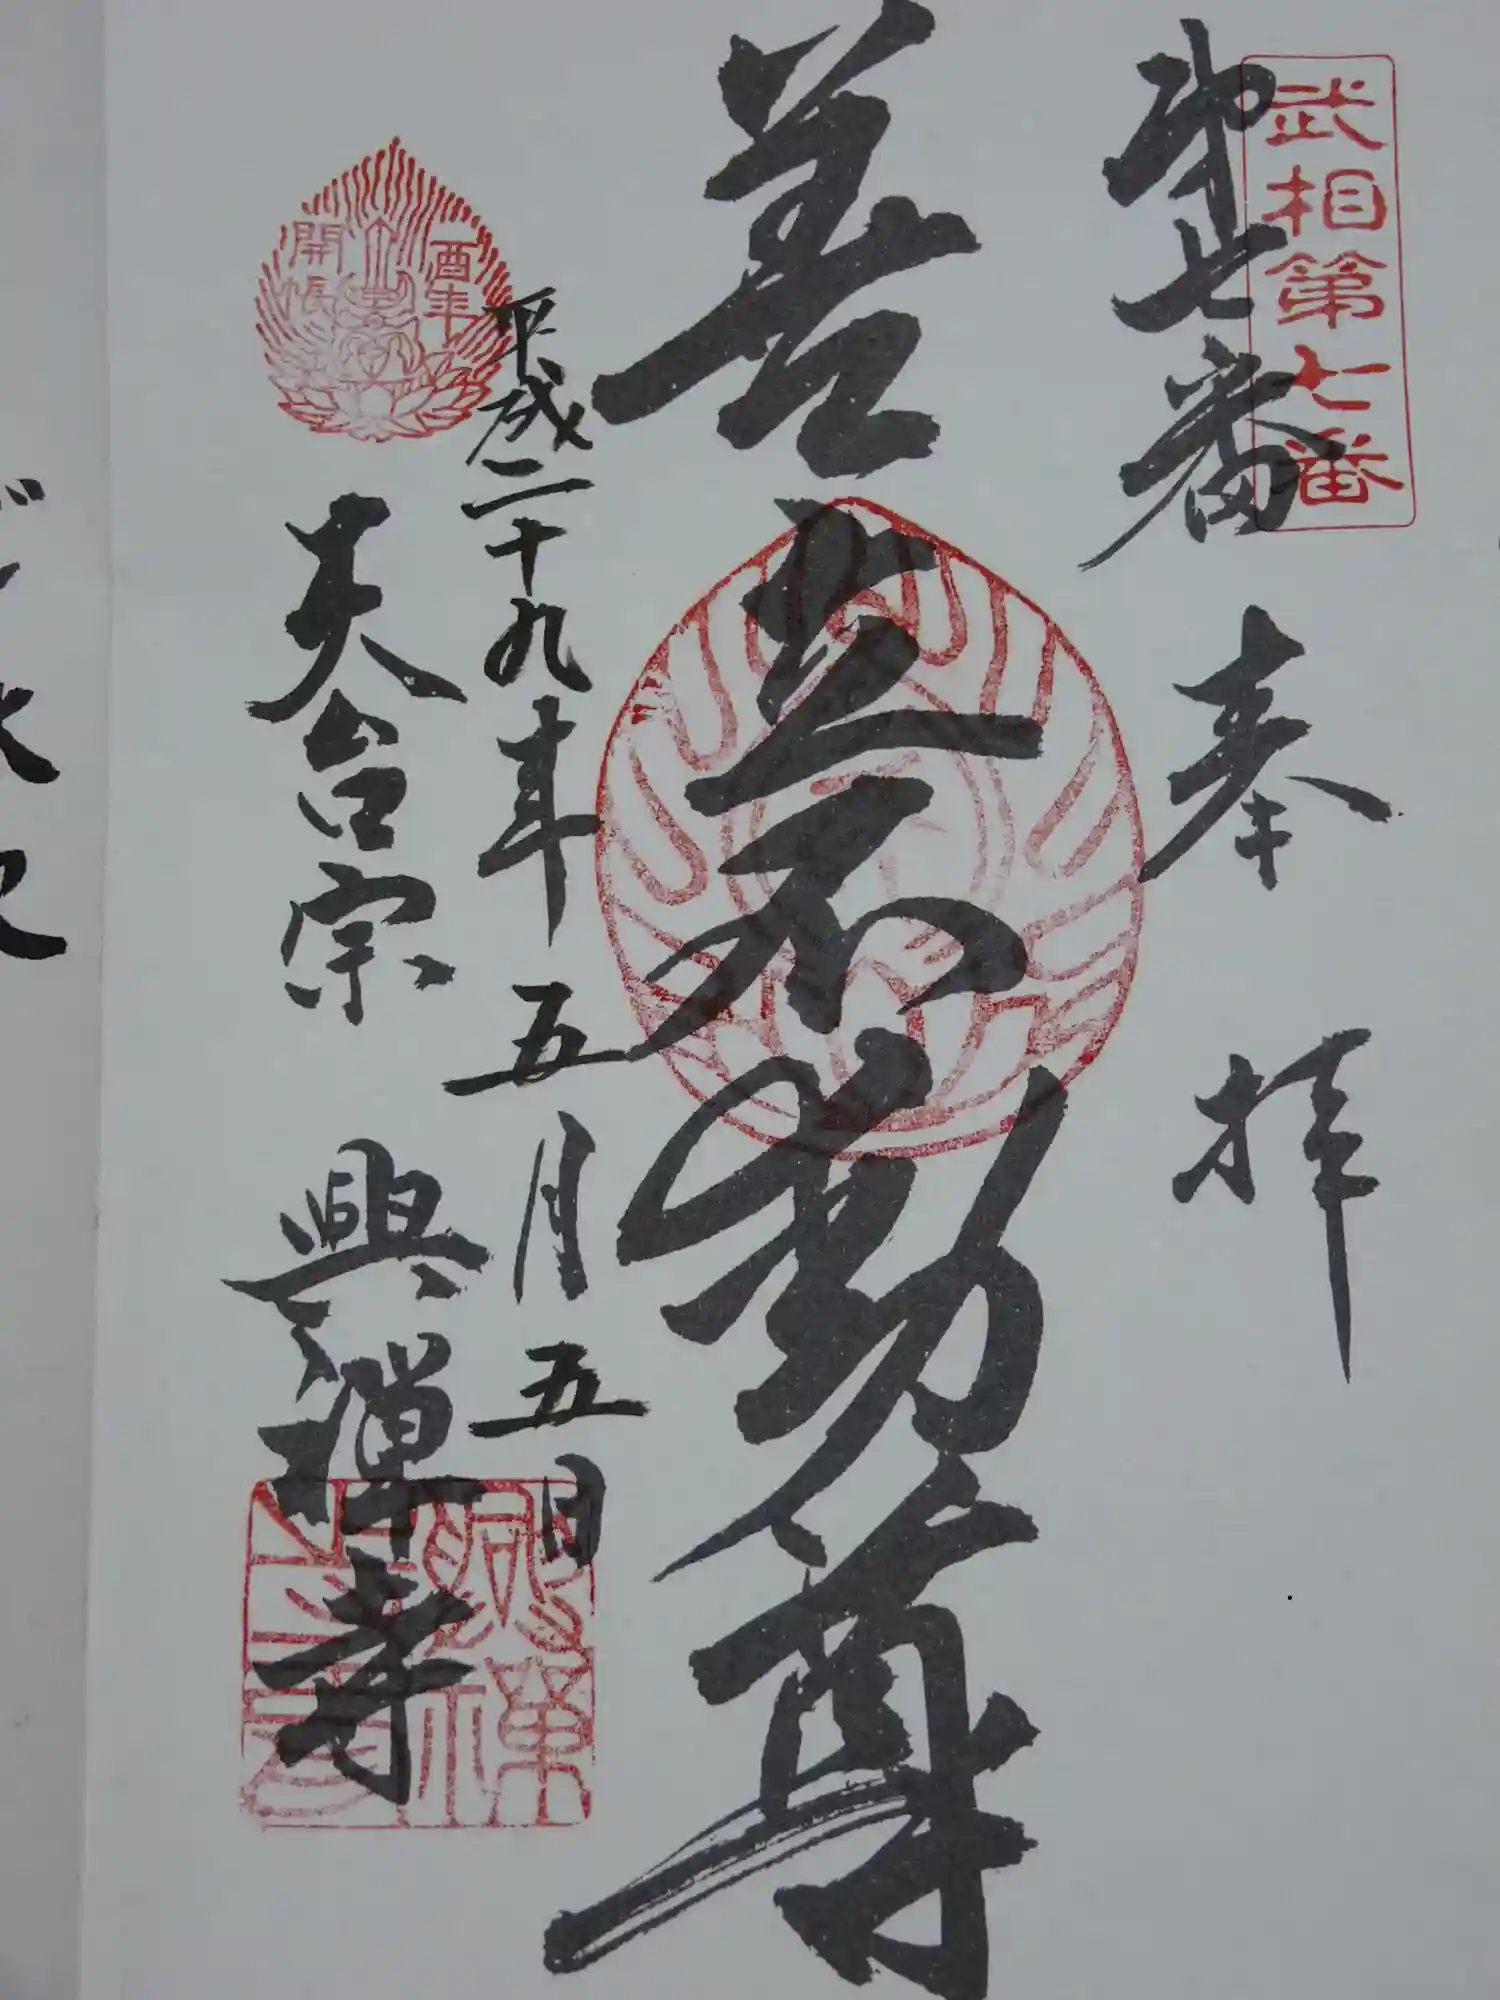 武相第七番
第七番 奉拝
善不動尊
平成二十九年五月五日
酉年
開帳
天台宗 興禅寺